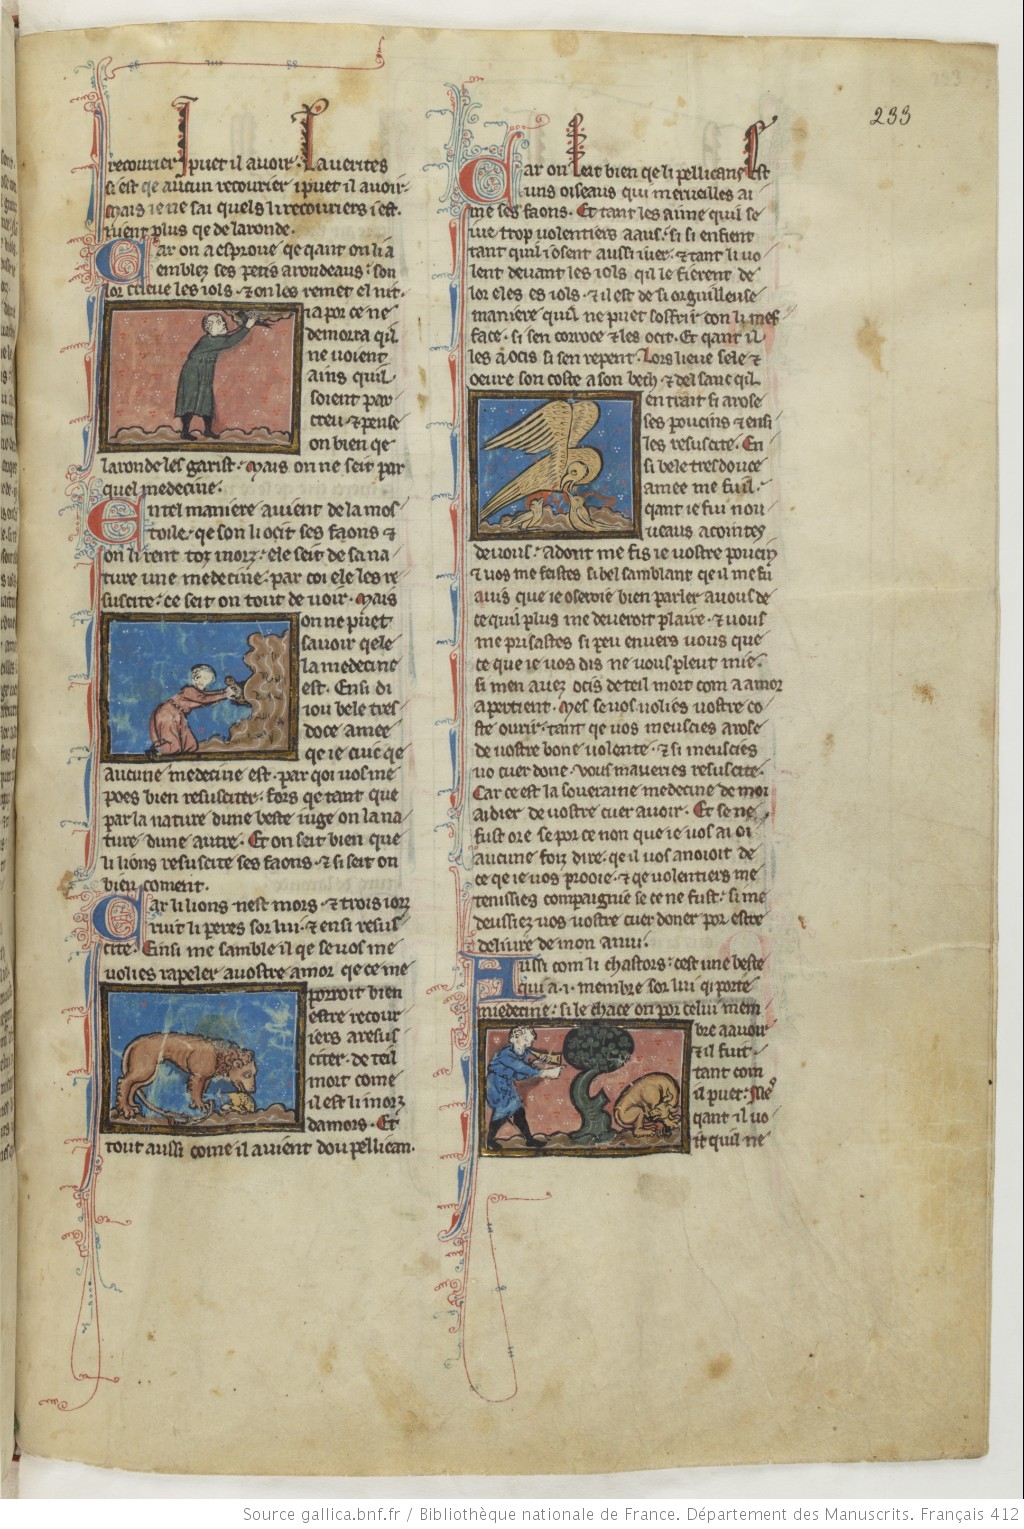 233
recourier ipuet il auoir. La uerites
si est qe aucun recourier ipuet il auoir.
Mais ie ne sai quels li recouriers i est.
nient plus qe de laronde.
Car on a esproue qe qant on li a
emblez ses petis arondeaus. son
lor crieue les iols. & on les remet el nit.
ia por ce ne
demorra qil
ne uoient
ains quil
soient par
creu & pense
on bien qe
laronde les garist. Mais on ne seit par
quel medecine.
En tel maniere auient de la mos
toile. qe son li ocit ses faons &
on li rent toz morz. ele seit de sa na
ture une medecine. par coi ele les re
suscite. ce seit on tout de uoir. Mais
on ne puet
sauoir qele
la medecine
est. Ensi di
iou bele tres
doce amee
qe ie cuic qe
aucune medecine est. par qoi uos me
poes bien resusciter. fors qe tant que
par la nature dune beste iuge on la na
ture dune autre. Et on seit bien que
li lions resuscite ses faons. & si seit on
bien coment.
Car li lions nest mors. & trois iorz
ruit li peres sor lui. & ensi resus
cite. Einsi me samble il qe se uos me
uolies rapeler a uostre amor qe ce me
porroit bien
estre recour
iers a resus
citer. de teil
mort come
il est li morz
damors. Et
tout aussi come il auient dou pellican.
Car on seit bien qe li pellicans est
uns oiseaus qui merueilles ai
me ses faons. Et tant les aime quil se
iue trop uolentiers a aus. si si enfient
tant quil i osent aussi iuer. & tant li uo
lent deuant les iols qil le fierent de
lor eles es iols. & il est de si orguilleuse
maniere quil ne puet soffrir con li mes
face. si sen corroce & les ocit. Et qant il
les a ocis si sen repent. Lors lieue sele &
oeure son coste a son bech. & del sanc qil
en trait si arose
ses poucins & ensi
les resuscite. En
si bele tres douce
amee me fuil.
qant ie fui nou
ueaus acointes
de uous. adont me fis ie uostre poucin
& uos me feistes si bel samblant qe il me fu
auis que ie oseroie bien parler a uous de
ce quil plus me deueroit plaire. & uous
me prisastes si peu enuers uous que
ce que ie uos dis ne uous pleut mie.
si men auez ocis de teil mort com a amor
apertient. Mes se uos uolies uostre co
ste ourir. tant qe uos meuscies arose
de uostre bone uolente. & si meuscies
uo cuer done. uous maueries resuscite.
Car ce est la soueraine medecine de moi
aidier de uostre cuer auoir. Et se ne
fust ore se por ce non que ie uos ai oi
aucune foiz dire. qe il uos anoioit de
ce qe ie uos prooie. & qe uolentiers me
tenissies compaignie se ce ne fust. si me
deussiez uos uostre cuer doner por estre
deliure de mon anui.
Aussi com li chastors. cest une beste
qui a .i. membre sor lui qi porte
medecine. si le chace on por celui mem
bre a auoir
& il fuit.
tant com
il puet. Mes
qant il uo
it quil ne
Source gallica.bnf.fr / Bibliothèque nationale de France. Département des Manuscrits. Français 412